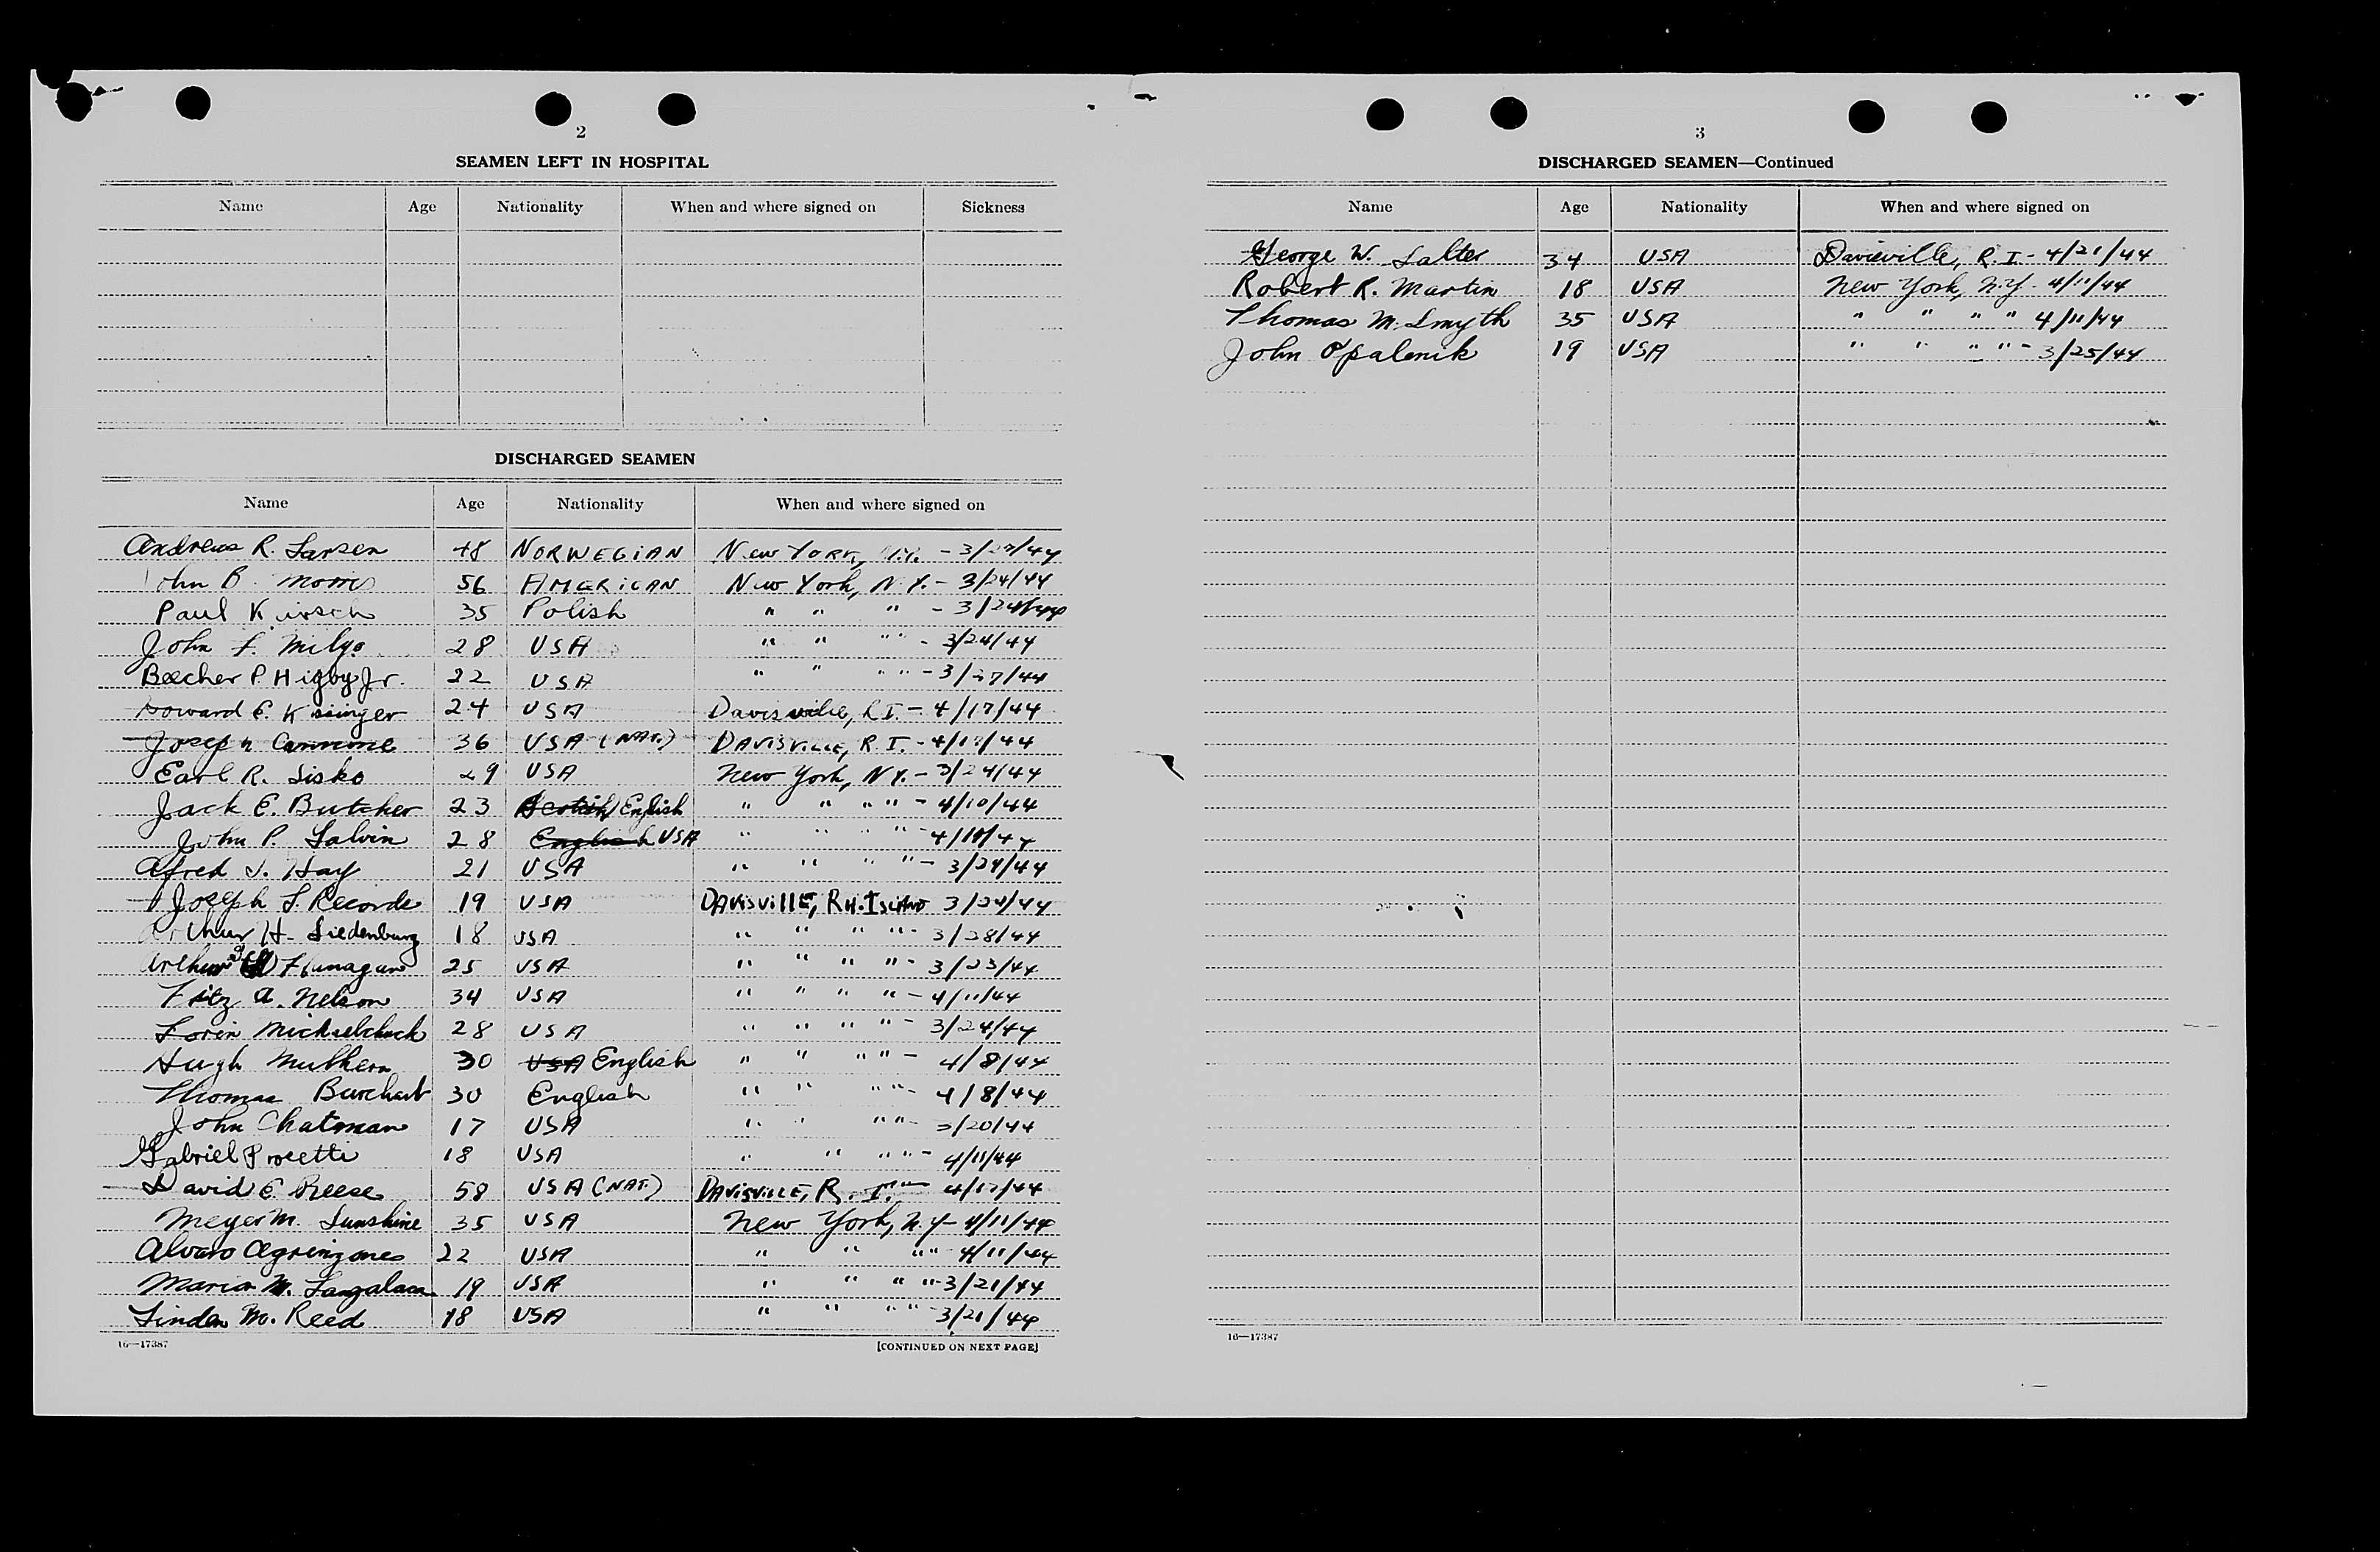 2
SEAMEN LEFT IN HOSPITAL
Name Age Nationality When and where signed on Sickness
DISCHARGED SEAMEN
Name Age Nationality When and where signed on
Andrew R. Larsen 48 NORWEGIAN New York, N.Y. - 3/27/44
John B. Morris 56 AMERICAN New York, N.Y. - 3/24/44
Paul Kirsch 35 Polish " " " - 3/24/44
John F. Milgo 28 USA " " " " - 3/24/44
Beecher P. Higby Jr. 22 USA " " " " - 3/27/44
Howard E. Kissinger 24 USA Davisville, R.I. - 4/17/44
Joseph Cannone 36 USA (NAT.) DAVISVILLE, R.I. - 4/17/44
Earl R. Sisko 29 USA New York, NY. - 3/24/44
Jack E. Butcher 23 Scotish English " " " " - 4/10/44
John P. Salvin 28 English USA " " " " - 4/10/44
Alfred J. Hay 21 USA " " " " - 3/24/44
Joseph L. Recorde 19 USA DAVISVILLE, RH. ISLAND 3/24/44
Arthur H. Siedenburg 18 USA " " " " - 3/28/44
Arthur Flanagan 25 USA " " " " - 3/23/44
Fritz A. Nelson 34 USA " " " " - 4/11/44
Loren 28 USA " " " " - 3/24/44
Hugh Mulhern 30 USA English " " " " - 4/8/44
Thomas Burchart 30 English " " " " - 4/8/44
John Chatman 17 USA " " " " - 3/20/44
Gabriel Procetti 18 USA " " " " - 4/11/44
David E. Reese 58 USA (NAT.) DAVISVILLE, R. I. - 4/17/44
Meyer M. Sunshine 35 USA New York, N.Y - 4/11/44
Alvaro Agrinzones 22 USA " " " " 4/11/44
Mario M. 19 USA " " " " - 3/21/44
Linden M. Reed 18 USA " " " " - 3/21/44
16—17387 [CONTINUED ON NEXT PAGE]
3
DISCHARGED SEAMEN—Continued
Name Age Nationality When and where signed on
George W. Salter 34 USA Davisville, R.I - 4/21/44
Robert R. Martin 18 USA New York, N.Y - 4/11/44
Thomas M. Smyth 35 USA " " " " 4/11/44
John Opalenik 19 USA " " " " - 3/25/44
16—17387